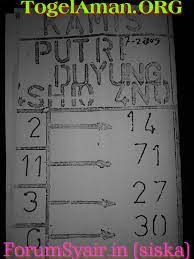 TogelAman.ORG
KAMIS
PUTRI
DUYUNG
2 14
11 71
3 27
6 30
ForumSyair.in (siska)